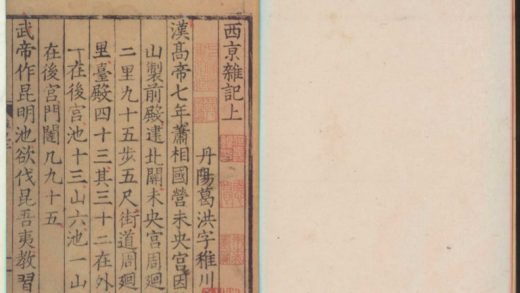 西京雜記上
丹陽葛洪字稚川
漢髙帝七年蕭相國營未央宫因
山製前殿建北闕未央宫周廻
二里九十五步五尺街道周廻
里臺殿四十三其三十二在外
一在後宫池十三山六池一山
在後宫門闥凡九十五
武帝作昆明池欲伐昆吾夷教習